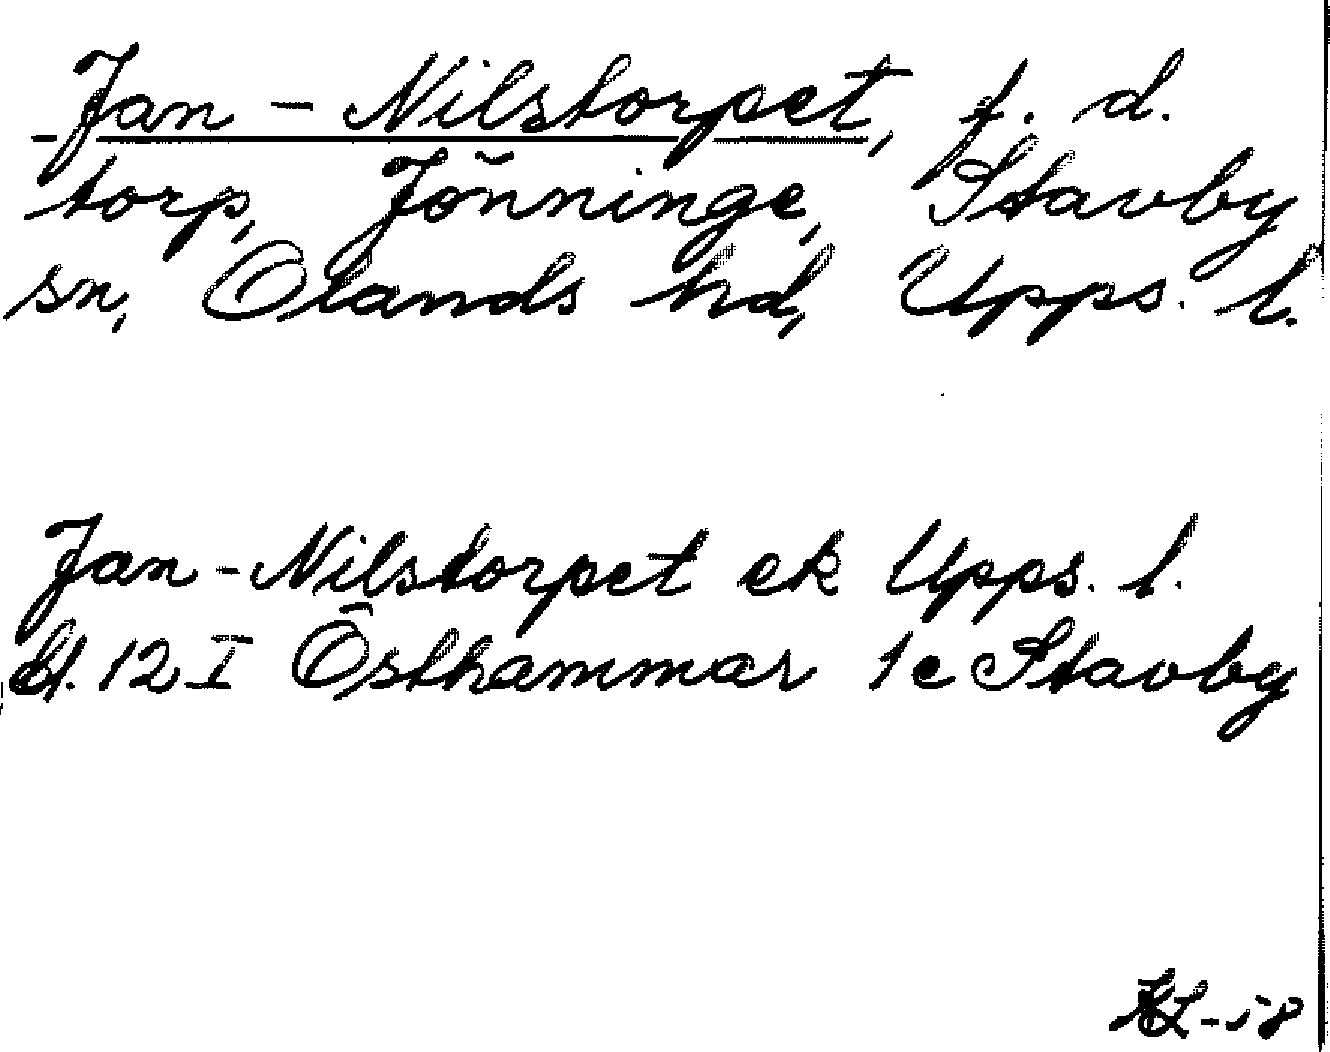 Jan-Nilstorpet, f. d.
torp, Jönninge, Stavby
sn, Olands hd, Upps. l.
Jan-Nilstorpet ek Upps. l.
bl. 12 I Östhammar 1e Stavby